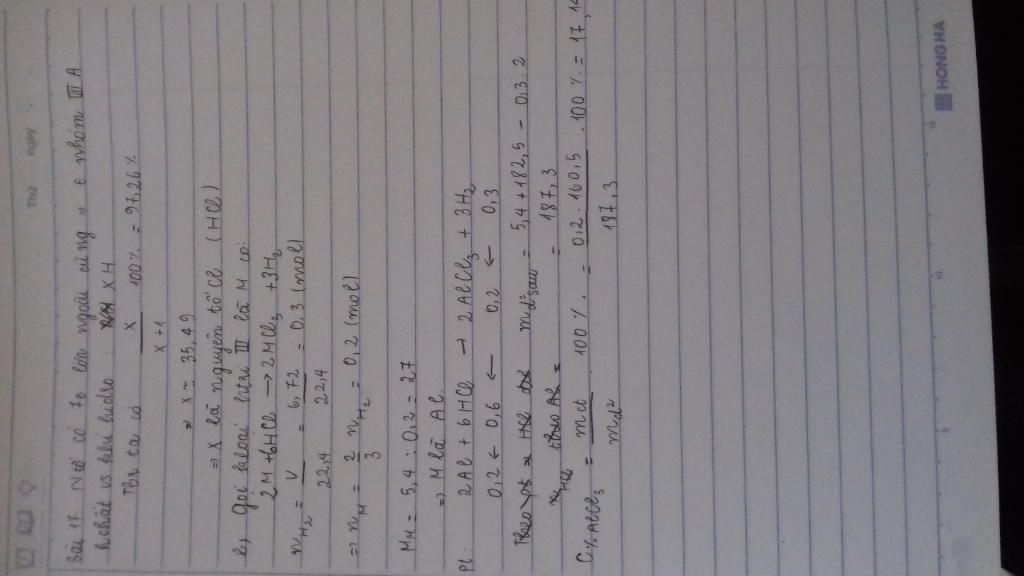 Thứ ngày
Bài 17. N tố có 7e lớp ngoài cùng → ∈ nhóm III A
h chất vs khí hidro : XH
Thì ta có X / X+1 100% = 97,26%
⇒ X ≈ 35,49
⇒ X là nguyên tố Cl (HCl)
b, gọi kloai htrị III là M có:
2M + 6HCl → 2MCl3 + 3H2
nH2 = V / 22,4 = 6,72 / 22,4 = 0,3 (mol)
⇒ nM = 2/3 nH2 = 0,2 (mol)
MM = 5,4 : 0,2 = 27
⇒ M là Al.
Pt: 2Al + 6HCl → 2AlCl3 + 3H2
0,2 ← 0,6 ← 0,2 ← 0,3
md² sau = 5,4 + 182,5 - 0,3 . 2
= 187,3
C% AlCl3 = mct / md² 100% = 0,2 . 160,5 / 187,3 . 100% = 17,14
HONG HA